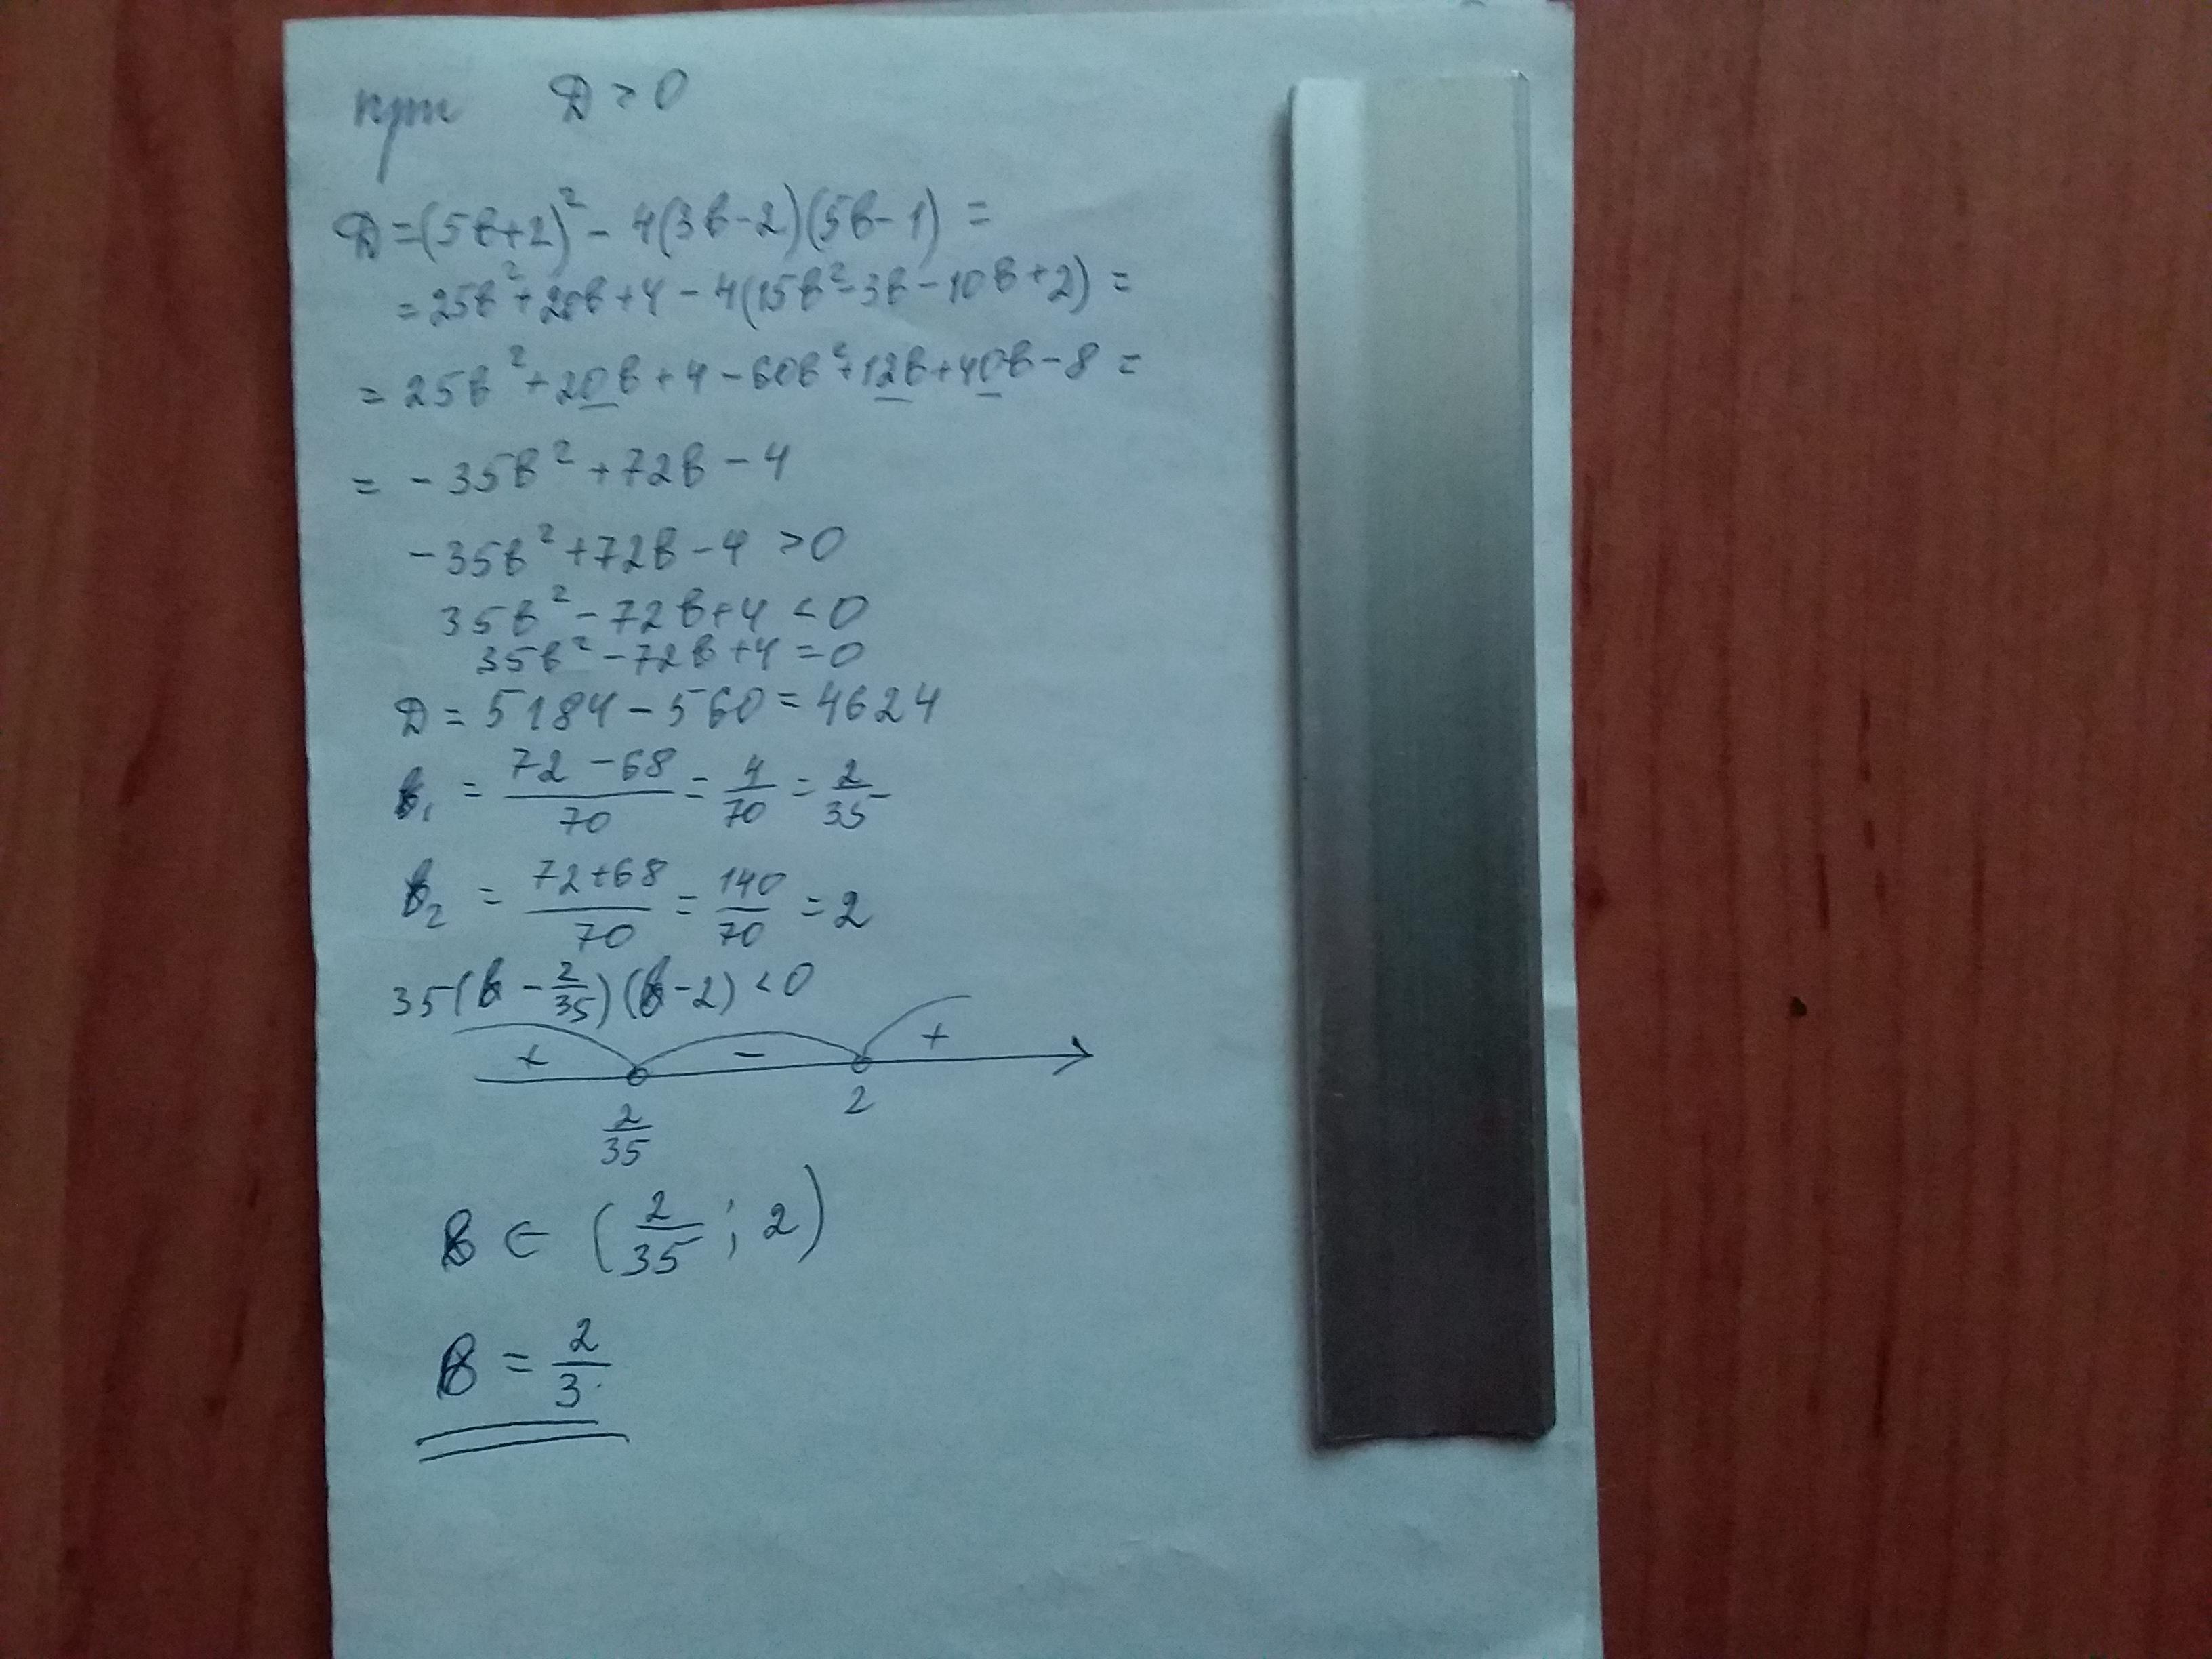 при D > 0
D = (5в+2)² - 4(3в-2)(5в-1) =
= 25в² + 20в + 4 - 4(15в² - 3в - 10в + 2) =
= 25в² + 20в + 4 - 60в² + 12в + 40в - 8 =
= - 35в² + 72в - 4
- 35в² + 72в - 4 > 0
35в² - 72в + 4 < 0
35в² - 72в + 4 = 0
D = 5184 - 560 = 4624
в₁ = (72 - 68)/70 = 4/70 = 2/35
в₂ = (72 + 68)/70 = 140/70 = 2
35(в - 2/35)(в - 2) < 0
+ - +
2/35 2
в ∈ (2/35 ; 2)
в = 2/3